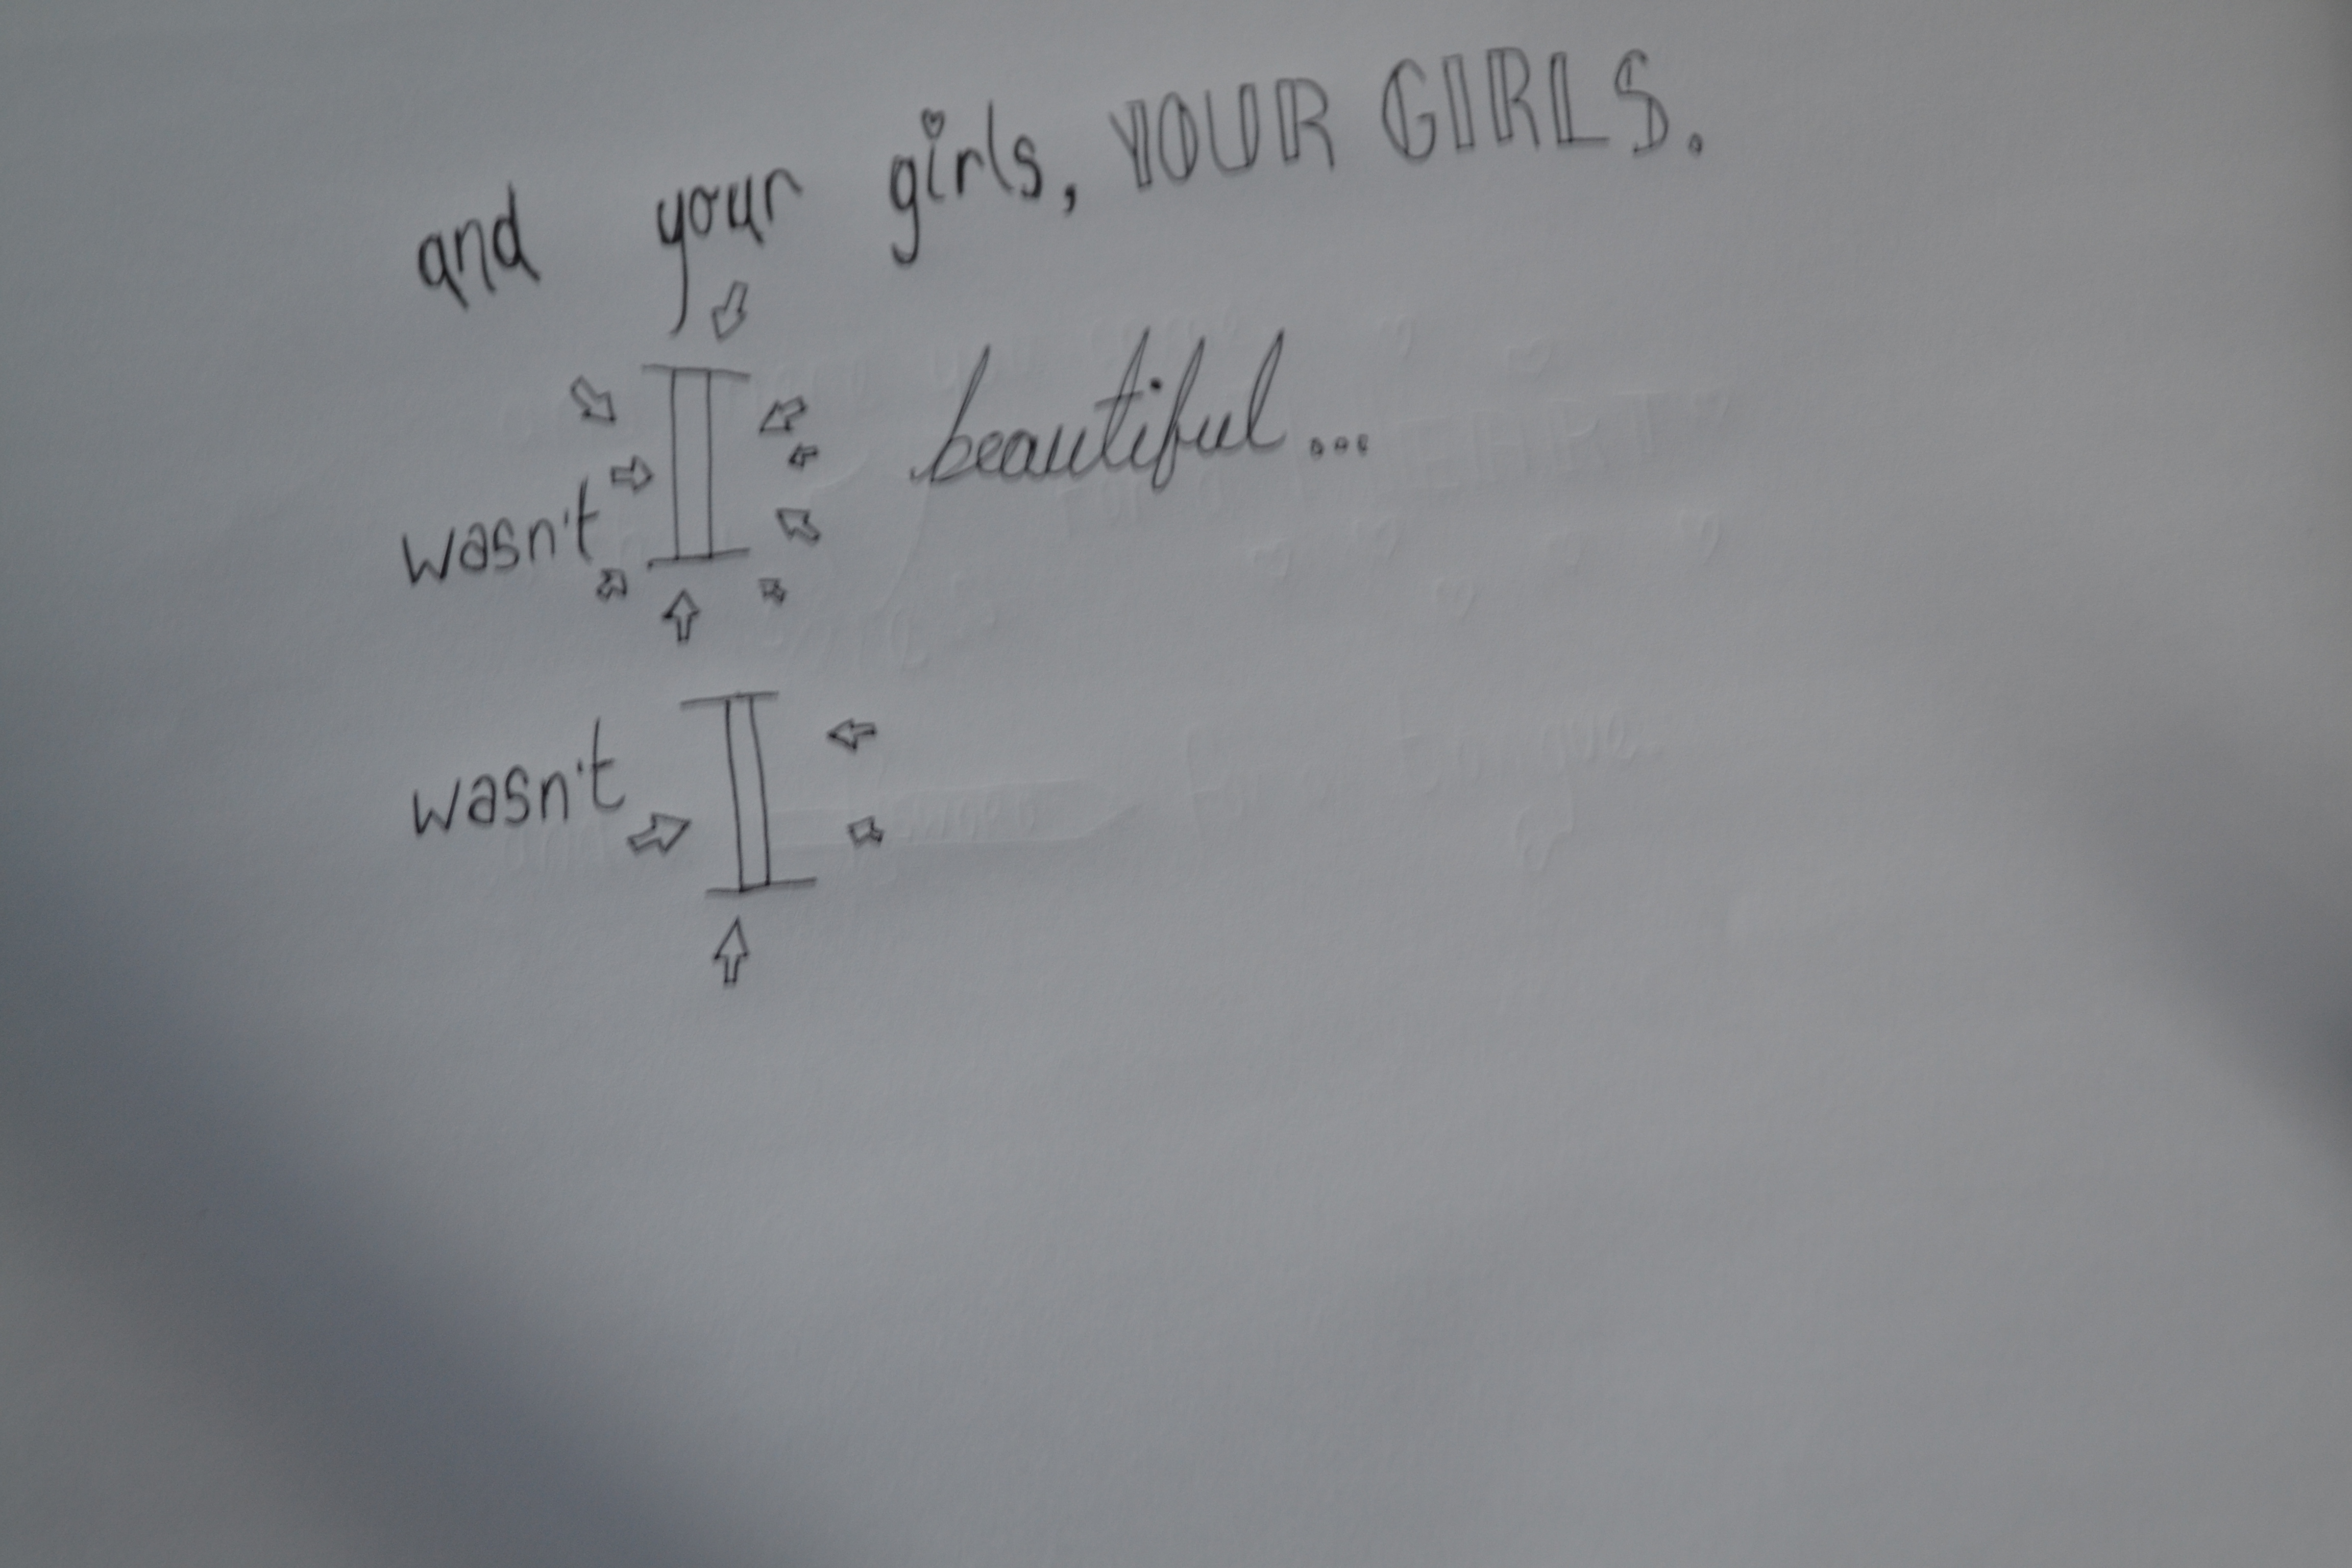 and your girls, YOUR GIRLS.
wasn't I beautiful...
wasn't I